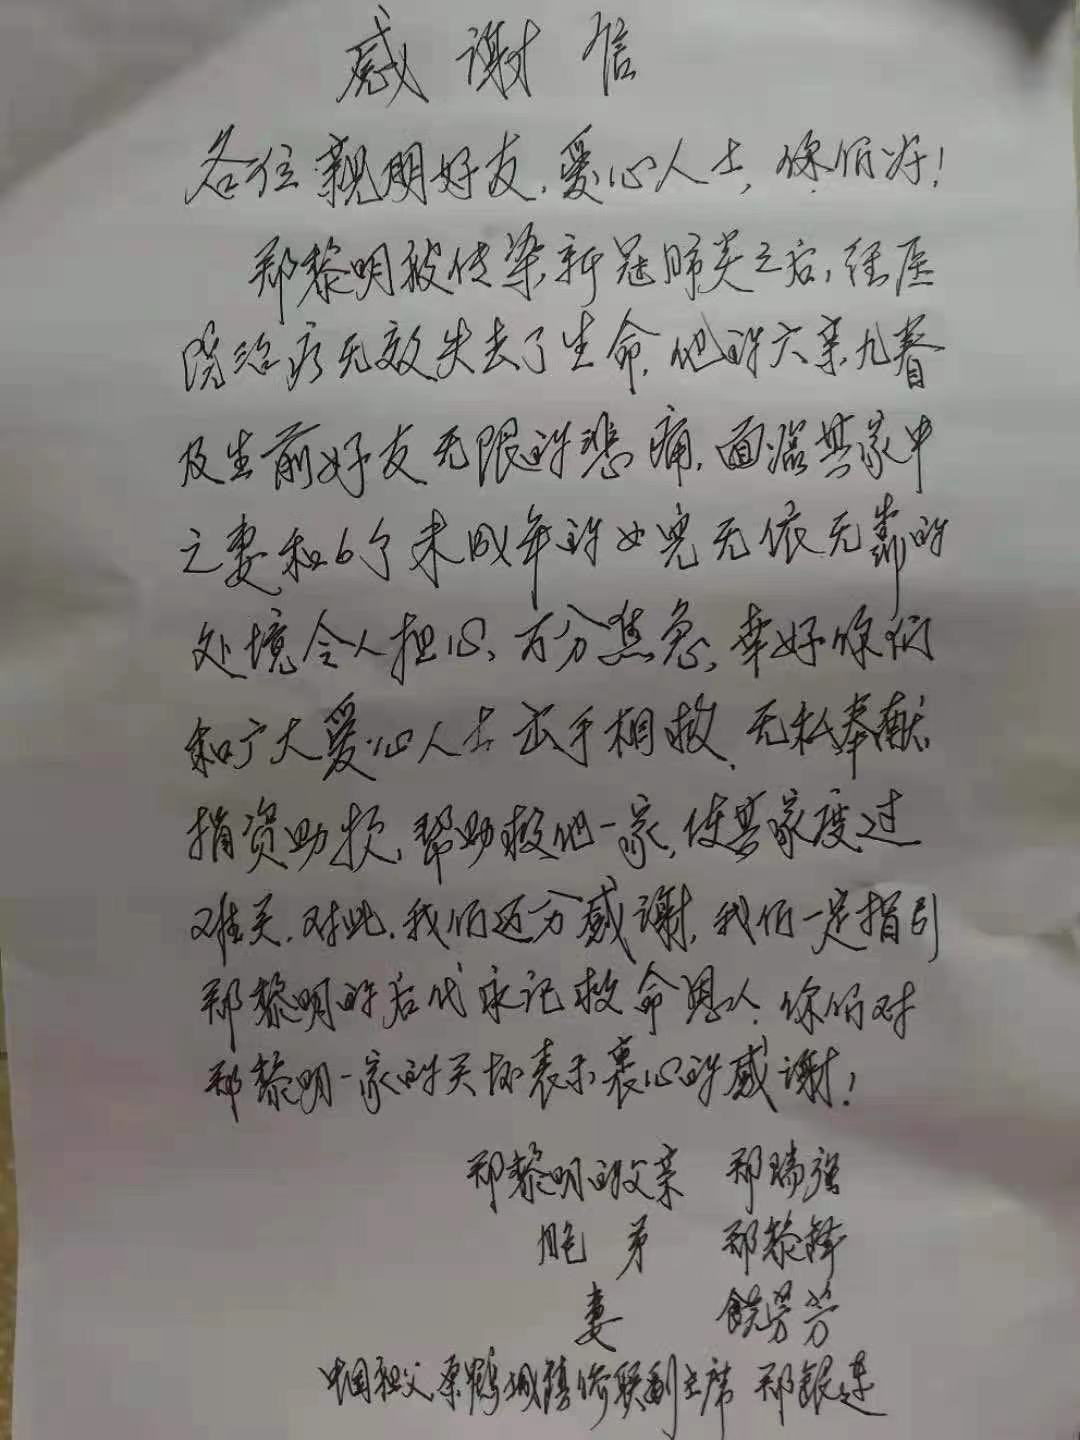 感谢信
各位亲朋好友、爱心人士，你们好！
郑黎明被传染新冠肺炎之后，经医
院治疗无效失去了生命，他的六亲九眷
及生前好友无限的悲痛，面临其家中
之妻和6个未成年的女儿无依无靠的
处境令人担心，万分焦急，幸好你们
和广大爱心人士出手相救，无私奉献
捐资助损，帮助救他一家，使其家度过
难关，对此，我们迈万感谢，我们一定指引
郑黎明的后代永记救命恩人，你们对
郑黎明一家的关怀表示衷心的感谢！
郑黎明的父亲 郑瑞强
胞弟 郑黎锋
妻 饶芳芳
中国祖父原鹤城镇侨联副主席 郑银连